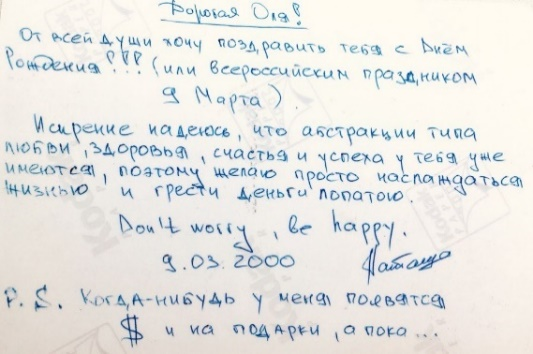 Дорогая Оля!
От всей души хочу поздравить тебя с Днём
Рождения!!! (или всероссийским праздником
9 Марта).
Искренне надеюсь, что абстракции типа
любви, здоровья, счастья и успеха у тебя уже
имеются, поэтому желаю просто наслаждаться
жизнью и грести деньги лопатою.
Don't worry, be happy.
9.03.2000 Наташа
P.S. Когда-нибудь у меня появятся
$ и на подарки, а пока...